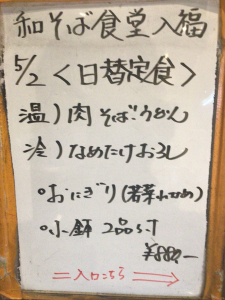 和そば食堂入福
5/2 <日替定食>
温)肉そば・うどん
冷)なめたけおろし
°おにぎり(若菜)
°小鉢 2品付
¥880.-
=入口こちら→